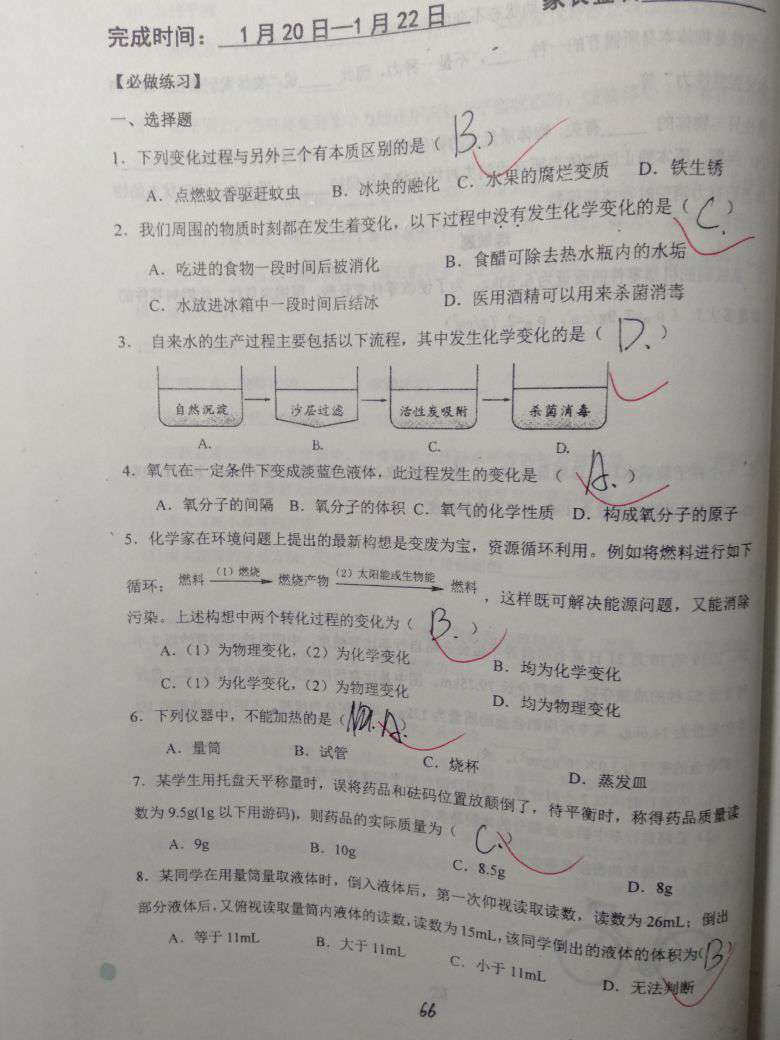 完成时间： 1月20日—1月22日
【必做练习】
一、选择题
1．下列变化过程与另外三个有本质区别的是（ B. ）
A．点燃蚊香驱赶蚊虫 B．冰块的融化 C．水果的腐烂变质 D．铁生锈
2．我们周围的物质时刻都在发生着变化，以下过程中没有发生化学变化的是（ C. ）
A．吃进的食物一段时间后被消化 B．食醋可除去热水瓶内的水垢
C．水放进冰箱中一段时间后结冰 D．医用酒精可以用来杀菌消毒
3． 自来水的生产过程主要包括以下流程，其中发生化学变化的是（ D. ）
自然沉淀 沙层过滤 活性炭吸附 杀菌消毒
A. B. C. D.
4．氧气在一定条件下变成淡蓝色液体，此过程发生的变化是 （ A. ）
A．氧分子的间隔 B．氧分子的体积 C．氧气的化学性质 D．构成氧分子的原子
5．化学家在环境问题上提出的最新构想是变废为宝，资源循环利用。例如将燃料进行如下
循环： 燃料 （1）燃烧 燃烧产物 （2）太阳能或生物能 燃料 ，这样既可解决能源问题，又能消除
污染。上述构想中两个转化过程的变化为（ B. ）
A．（1）为物理变化，（2）为化学变化 B．均为化学变化
C．（1）为化学变化，（2）为物理变化 D．均为物理变化
6．下列仪器中，不能加热的是（ A. ）
A．量筒 B．试管 C．烧杯 D．蒸发皿
7．某学生用托盘天平称量时，误将药品和砝码位置放颠倒了，待平衡时，称得药品质量读
数为 9.5g(1g 以下用游码)，则药品的实际质量为（ C. ）
A．9g B．10g C．8.5g D．8g
8．某同学在用量筒量取液体时，倒入液体后，第一次仰视读取读数，读数为 26mL；倒出
部分液体后，又俯视读取量筒内液体的读数，读数为 15mL，该同学倒出的液体的体积为（ B ）
A．等于 11mL B．大于 11mL C．小于 11mL D．无法判断
66